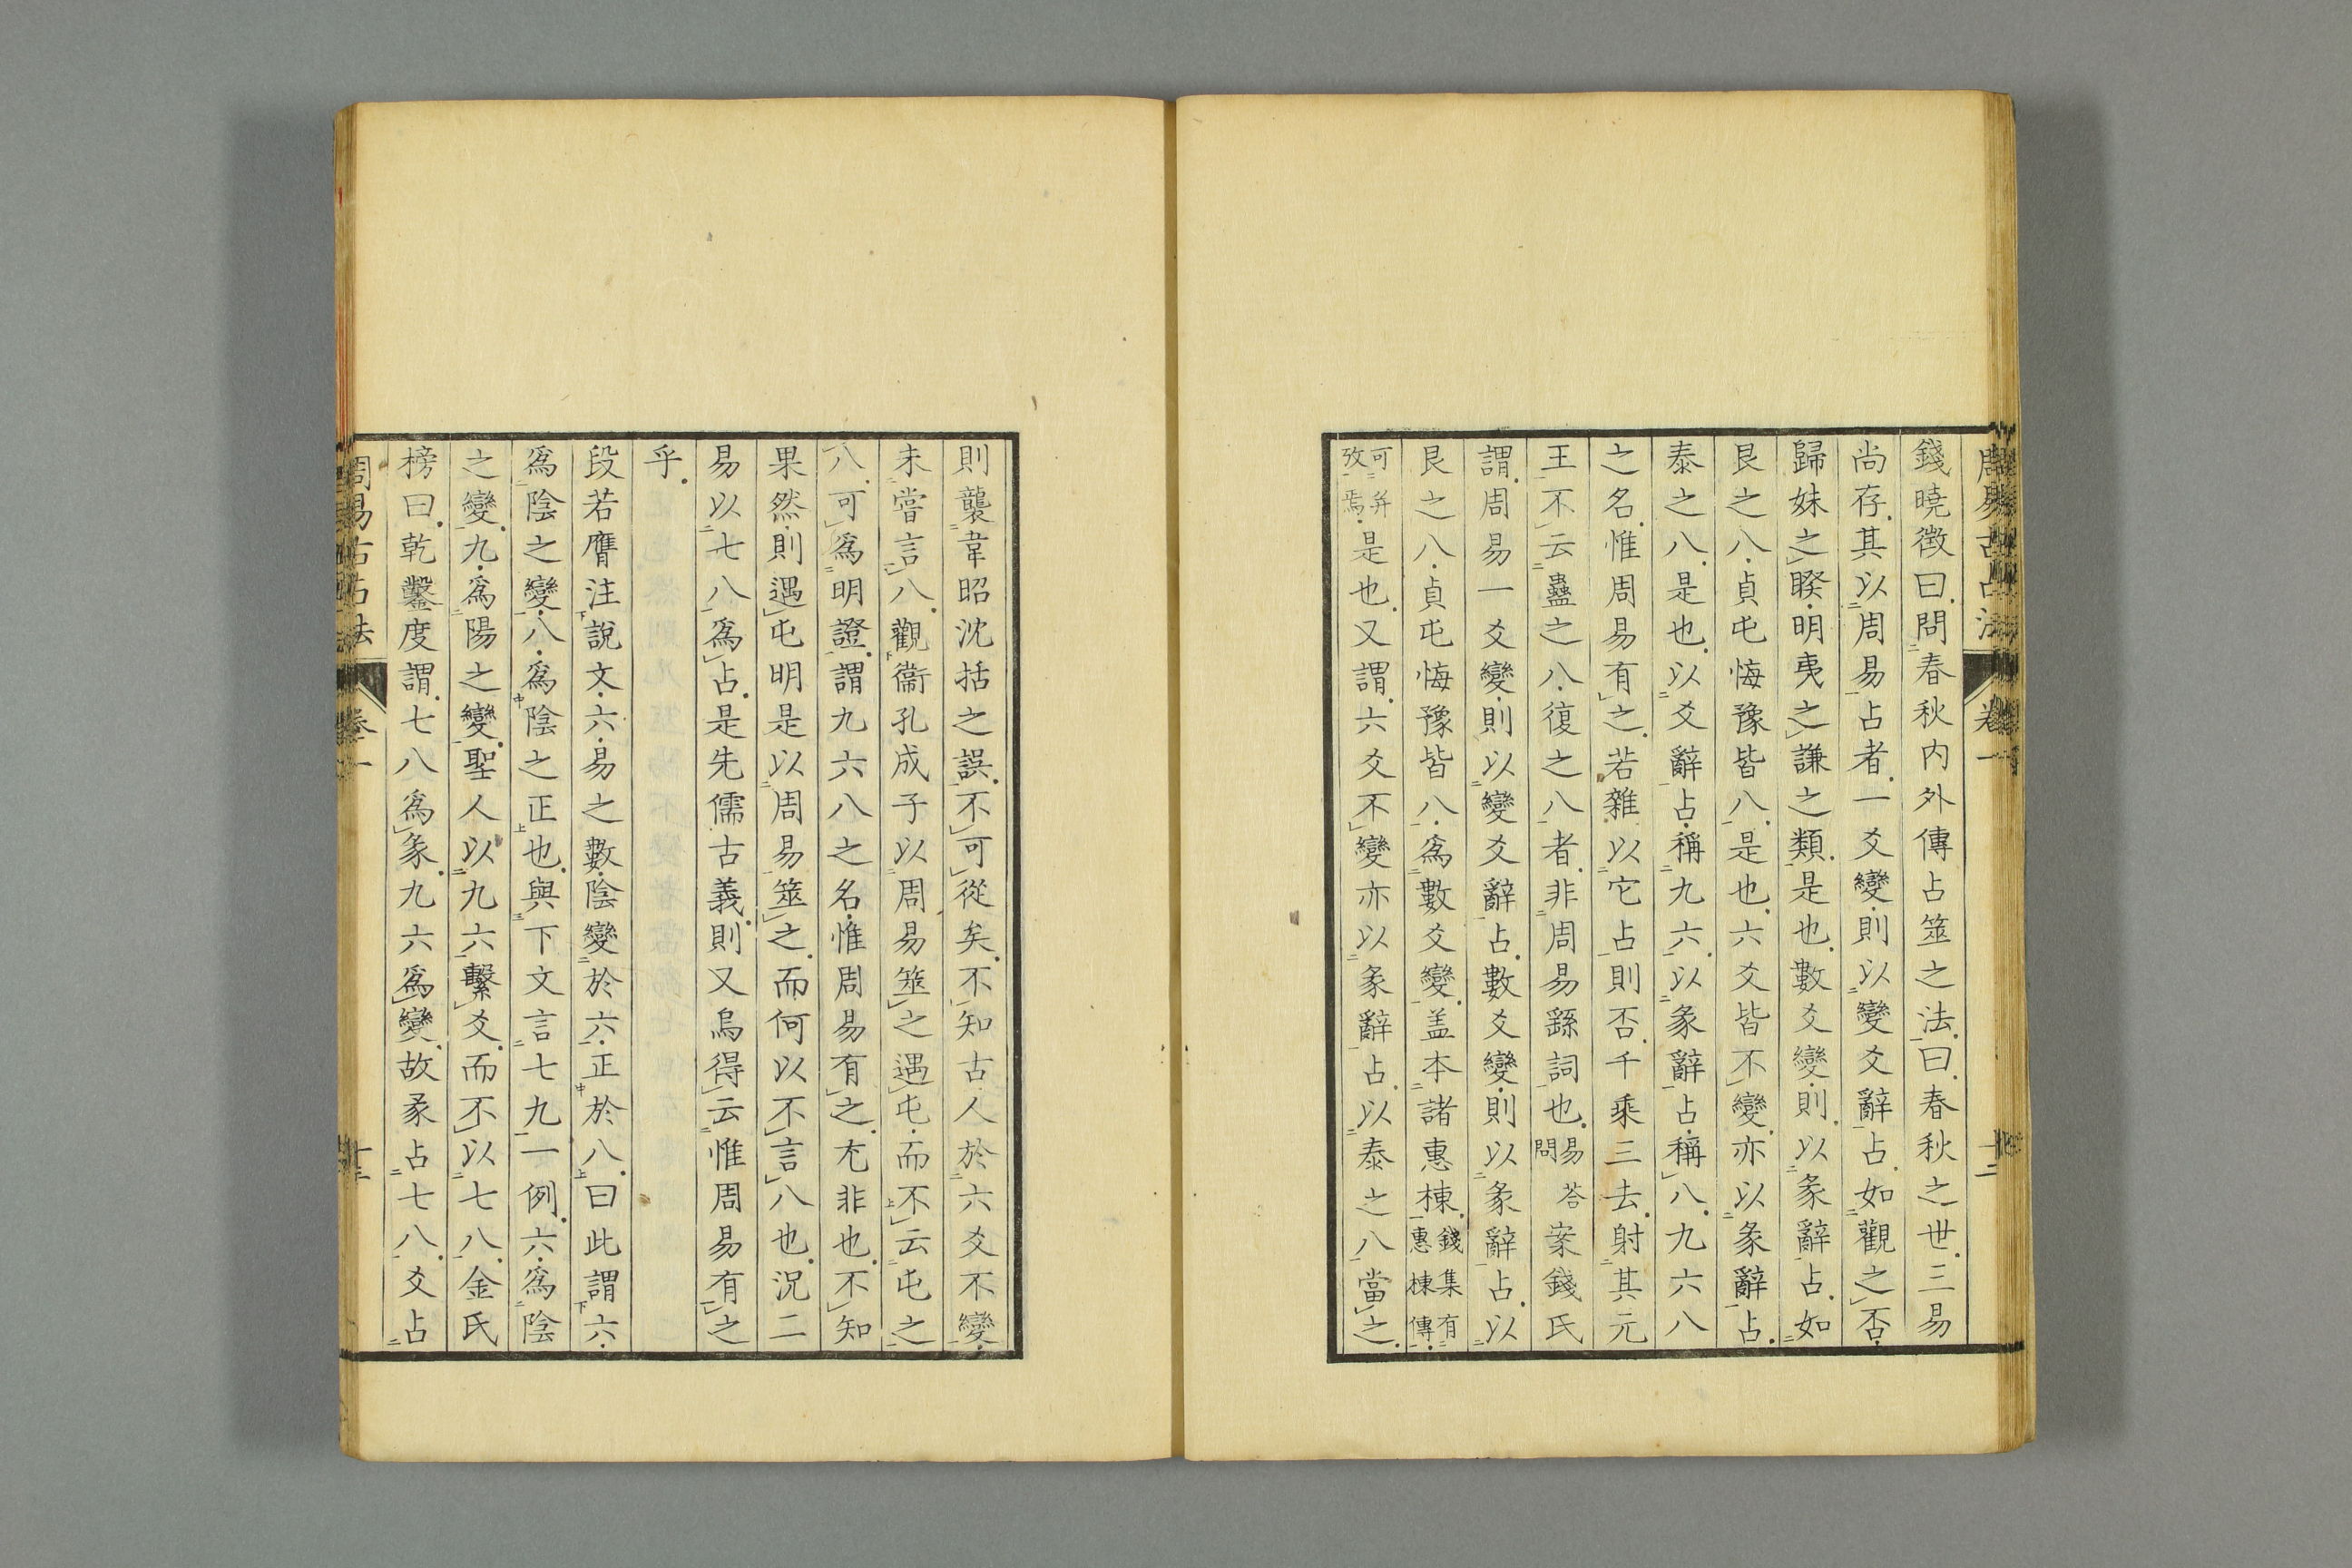 周易古占法 卷一 十二
錢曉徴曰問春秋内外傳占筮之法曰春秋之世三易
尚存其以周易占者一爻變則以變爻辭占如觀之否
歸妹之睽明夷之謙之類是也數爻變則以彖辭占如
艮之八貞屯悔豫皆八是也六爻皆不變亦以彖辭占
泰之八是也以爻辭占稱九六以彖辭占稱八九六八
之名惟周易有之若雜以它占則否千乘三去射其元
王不云蠱之八復之八者非周易繇詞也易荅問案錢氏
謂周易一爻變則以變爻辭占數爻變則以彖辭占以
艮之八貞屯悔豫皆八爲數爻變盖本諸惠棟錢集有惠棟傳
可并攷焉是也又謂六爻不變亦以彖辭占以泰之八當之
則襲韋昭沈括之誤不可從矣不知古人於六爻不變
未嘗言八觀衞孔成子以周易筮之遇屯而不云屯之
八可爲明證謂九六八之名惟周易有之尤非也不知
果然則遇屯明是以周易筮之而何以不言八也況二
易以七八爲占是先儒古義則又烏得云惟周易有之
乎
段若膺注說文六易之數陰變於六正於八曰此謂六
爲陰之變八爲陰之正也與下文言七九一例六爲陰
之變九爲陽之變聖人以九六繫爻而不以七八金氏
榜曰乾鑿度謂七八爲彖九六爲變故彖占七八爻占
周易古占法 卷一